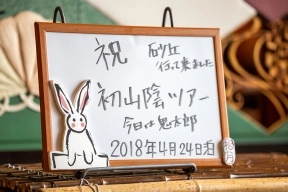 祝 砂丘
行って来ました
初山陰ツアー
今日は鬼太郎
2018年4月24日